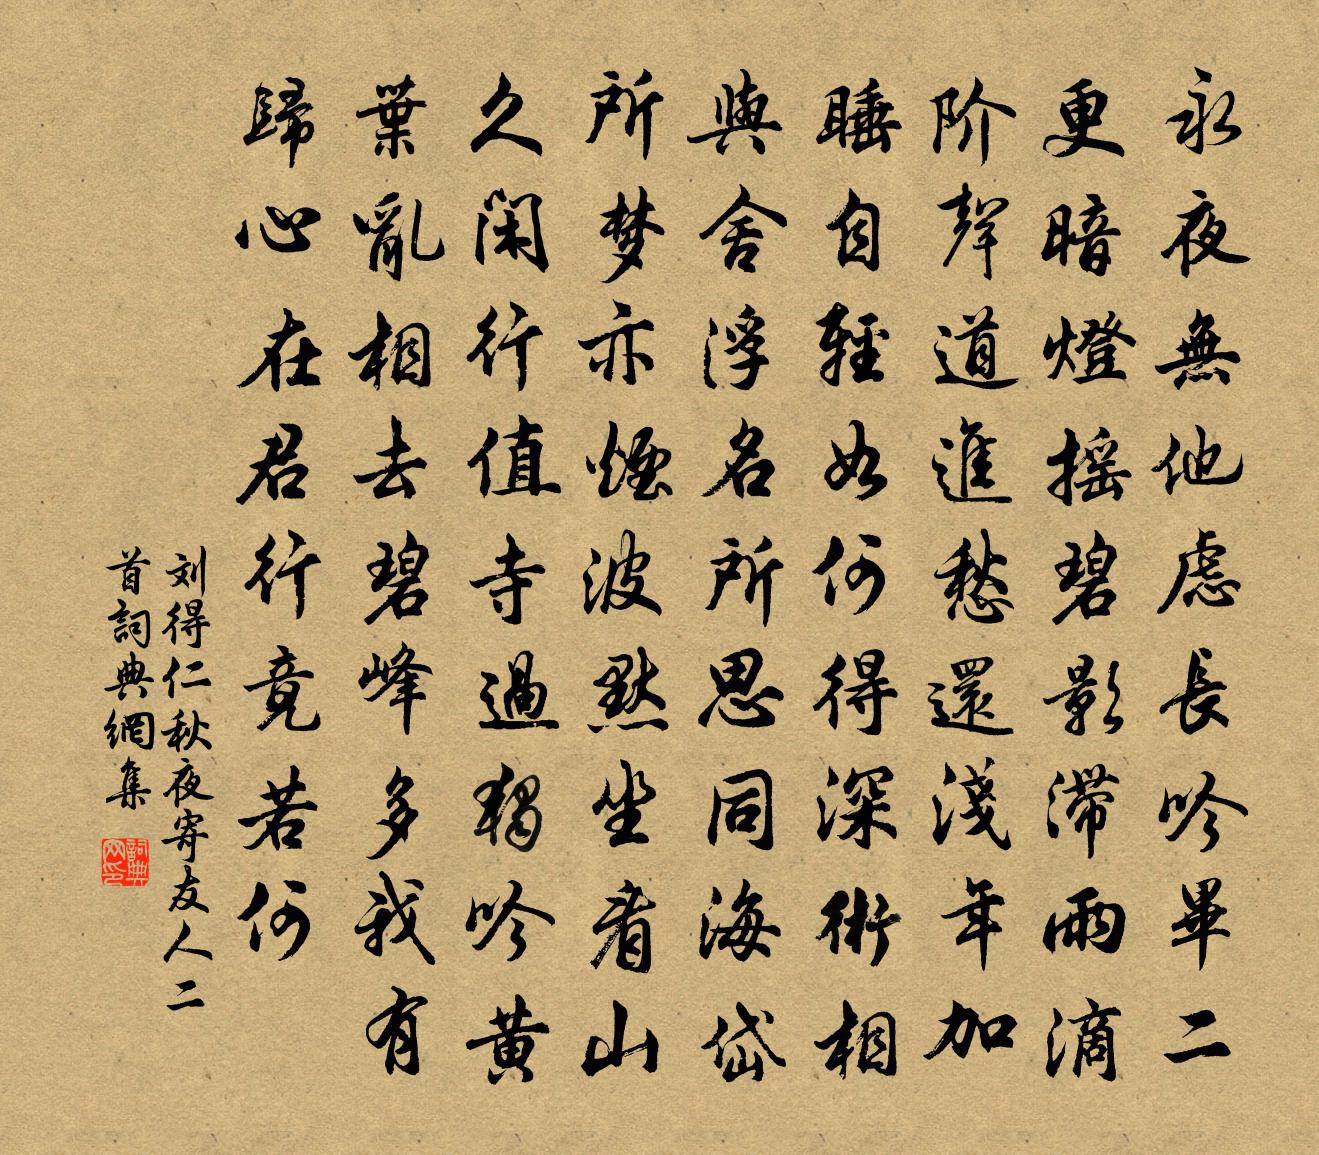 永夜無他慮長吟畢二
更暗燈搖碧影滯雨滴
阶聲道進愁還淺年加
睡自輕如何得深術相
與舍浮名所思同海岱
所梦亦煙波默坐看山
久閑行值寺過獨吟黄
葉亂相去碧峰多我有
歸心在君行竟若何
刘得仁秋夜寄友人二
首詞典網集
詞典網印